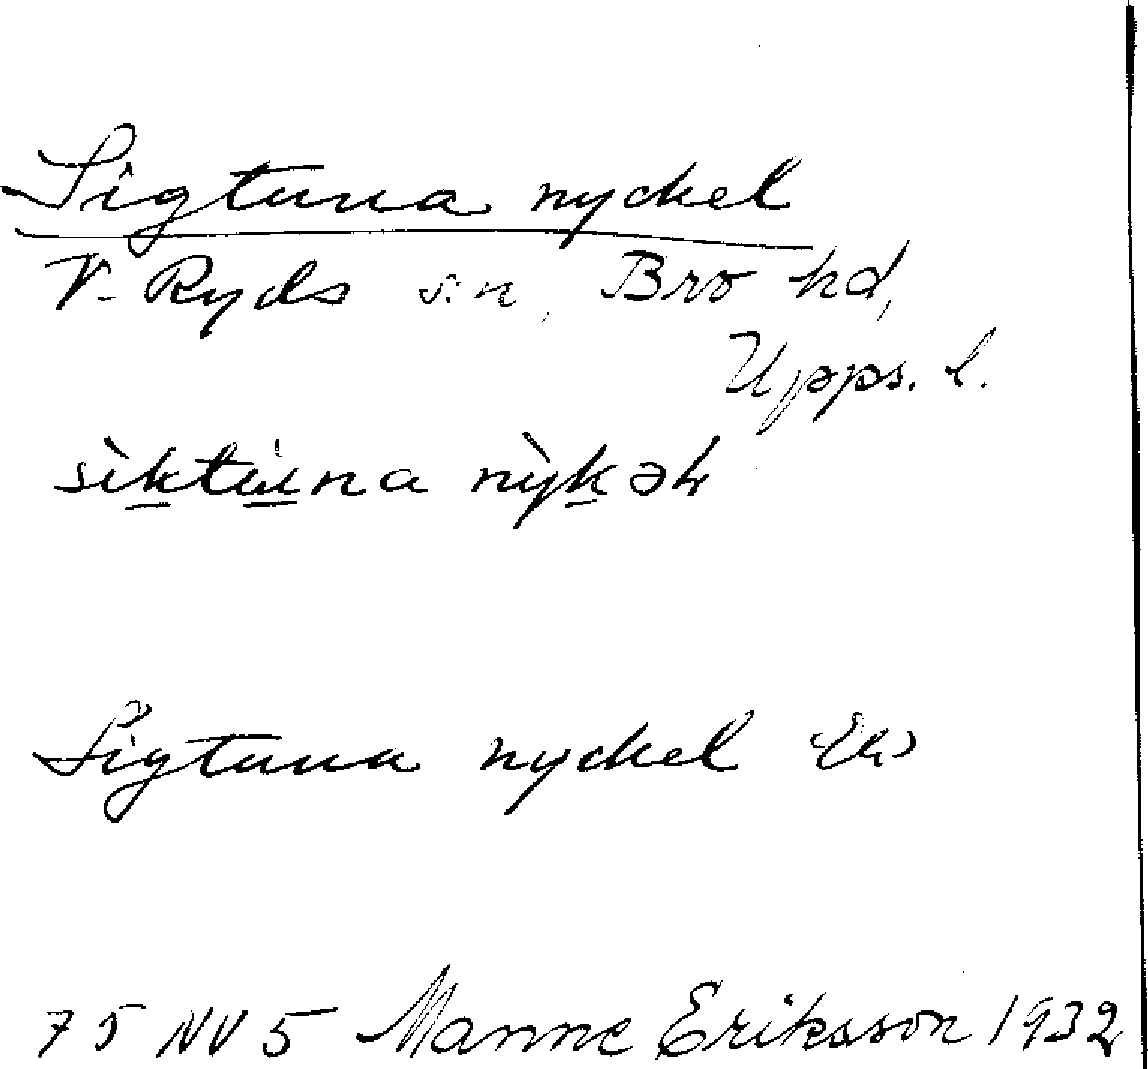 Sigtuna nyckel
V-Ryds s:n, Bro hd,
Upps. l.
sìktúna nỳkəl
Sigtuna nyckel Ek
75 NV 5 Manne Eriksson 1932